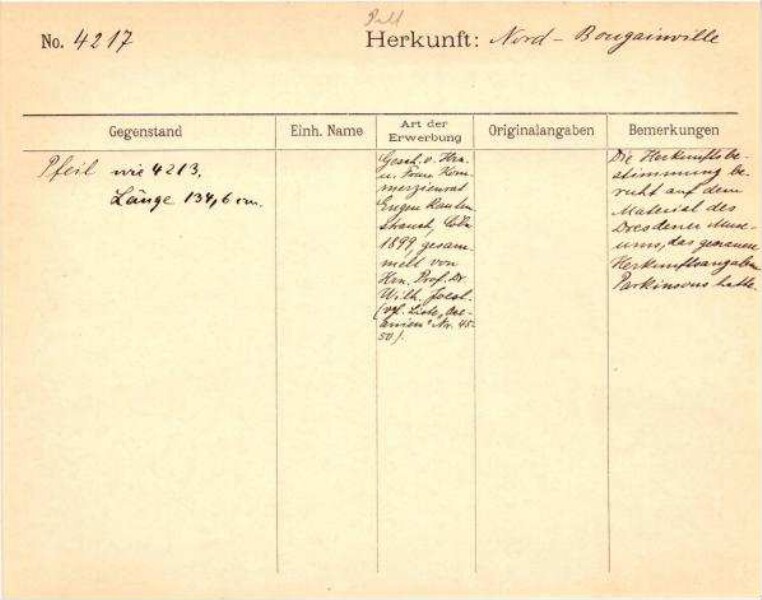 No. 4217
Herkunft: Nord-Bougainville
Gegenstand
Einh. Name
Art der
Erwerbung
Originalangaben
Bemerkungen
Pfeil wie 4213.
Länge 134,6 cm.
Gesch. v. Hrn.
u. Frau Kom-
merzienrat
Eugen Rauten-
strauch, Cöln
1899, gesam-
melt von
Hrn. Prof. Dr.
Wilh. Joest.
(vgl. Liste „Oce-
anien" Nr. 45-
50).
Die Herkunftsbe-
stimmung be-
ruht auf dem
Material des
Dresdener Muse-
ums, das genauere
Herkunftsangaben
Parkinsons hatte.